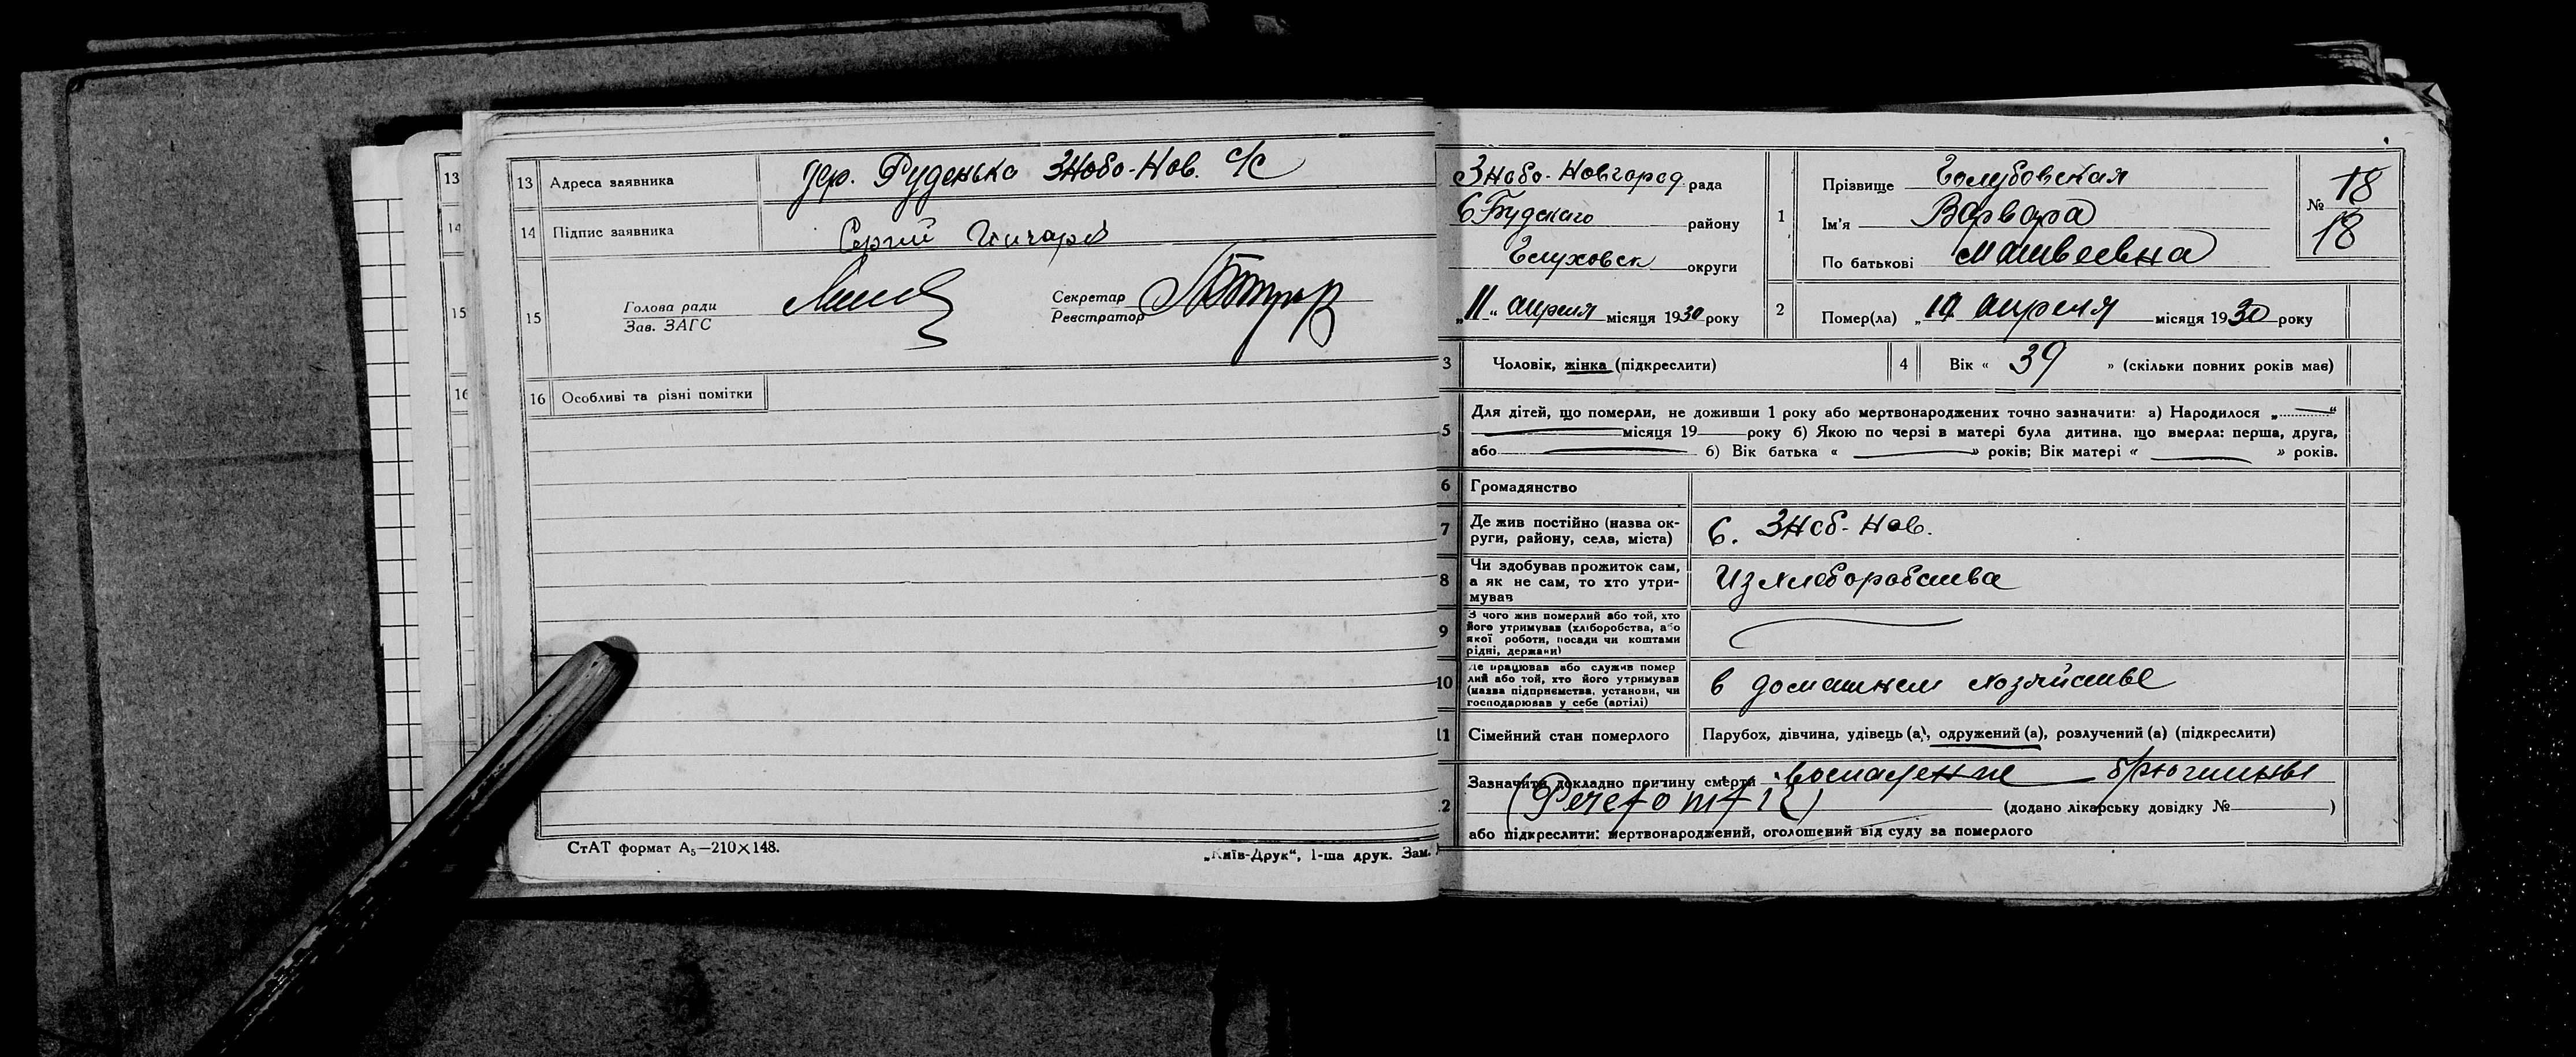 13
14
15
16
13 Адреса заявника дер. Руденько Знобо-Нов. с/с
14 Підпис заявника Сергий
15 Голова ради
Зав. ЗАГС
Секретар
Реєстратор
16 Особливі та різні помітки
СтАТ формат А5—210×148.
„Київ-Друк“, 1-ша друк. Зам.
Знобо-Новгород рада
С Будскаго району
Глуховск округи
„11“ апреля місяця 1930 року
1 Прізвище Голубовская
Ім'я Варвара
По батькові Матвеевна
№ 18
18
2 Помер(ла) „ апреля місяця 1930 року
3 Чоловік, жінка (підкреслити)
4 Вік « 39 » (скільки повних років має)
5 Для дітей, що померли, не доживши 1 року або мертвонароджених точно зазначити: а) Народилося „ “
місяця 19 року б) Якою по черзі в матері була дитина, що вмерла: перша, друга,
або б) Вік батька « » років; Вік матері « » років.
6 Громадянство
7 Де жив постійно (назва ок-
руги, району, села, міста)
с. Зноб-Нов.
8 Чи здобував прожиток сам,
а як не сам, то хто утри-
мував
Из хлеборобства
9 З чого жив померлий або той, хто
його утримував (хліборобства, або
якої роботи, посади чи коштами
рідні, держави)
10 Де працював або служив помер
лий або той, хто його утримував
(назва підприємства, установи, чи
господарював у себе (артілі)
в домашнем хозяйстве
11 Сімейний стан померлого
Парубох, дівчина, удівець (а), одружений (а), розлучений (а) (підкреслити)
2 Зазначити докладно причину смерти воспаление брюшины
(додано лікарську довідку № )
або підкреслити: мертвонароджений, оголошений від суду за померлого